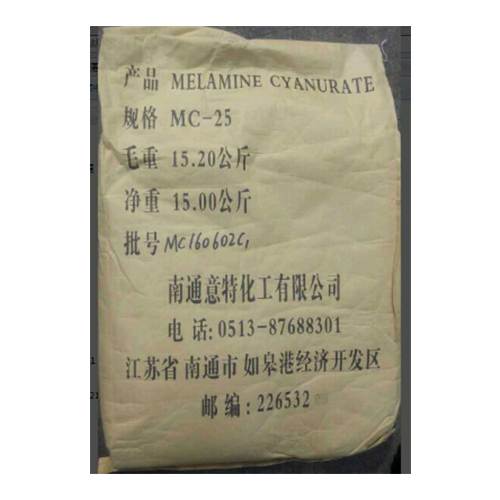 产品 MELAMINE CYANURATE
规格 MC-25
毛重 15.20公斤
净重 15.00公斤
批号 MC160602G
南通意特化工有限公司
电 话:0513-87688301
江苏省 南通市 如皋港经济开发区
邮 编:226532